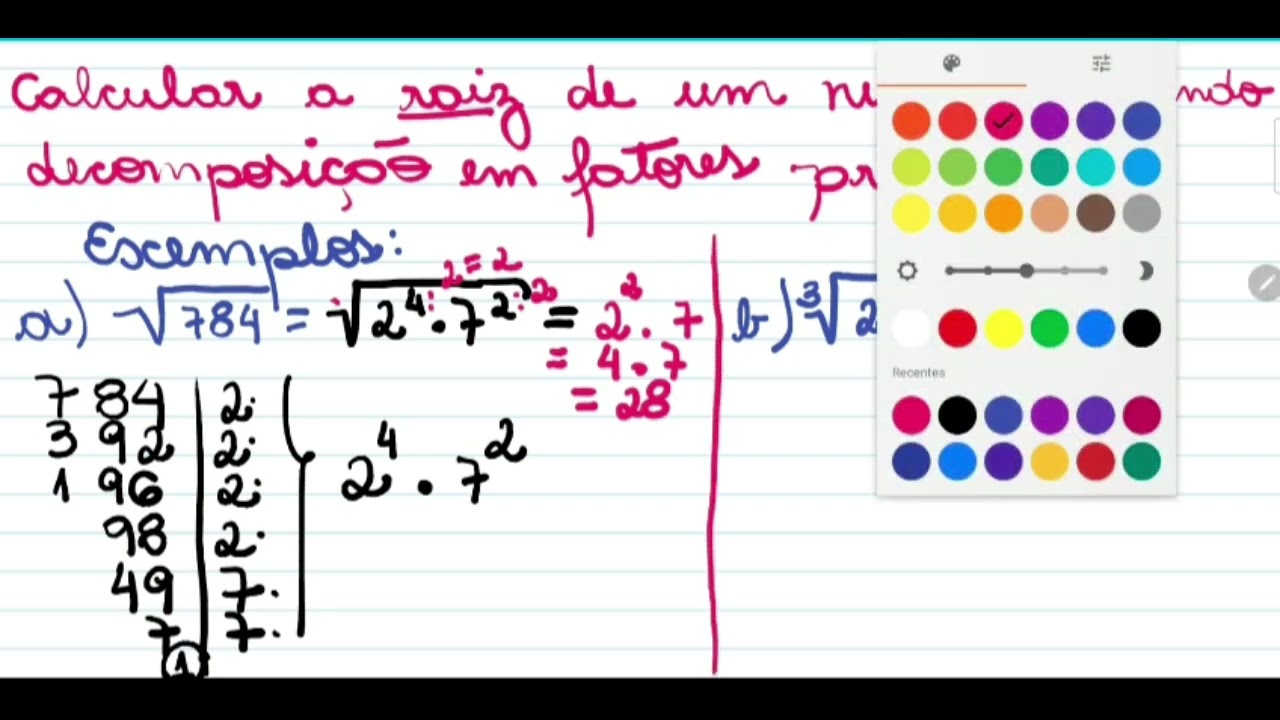 Calcular a raiz de um nu ndo
decomposição em fatores pr
Exemplos:
a) √784 = √2⁴·7² = 2²·7
: 2 = 2
: 2
= 4·7
= 28
b) ³√2
784 | 2
392 | 2
196 | 2
98 | 2
49 | 7
7 | 7
1
2⁴·7²
Recentes